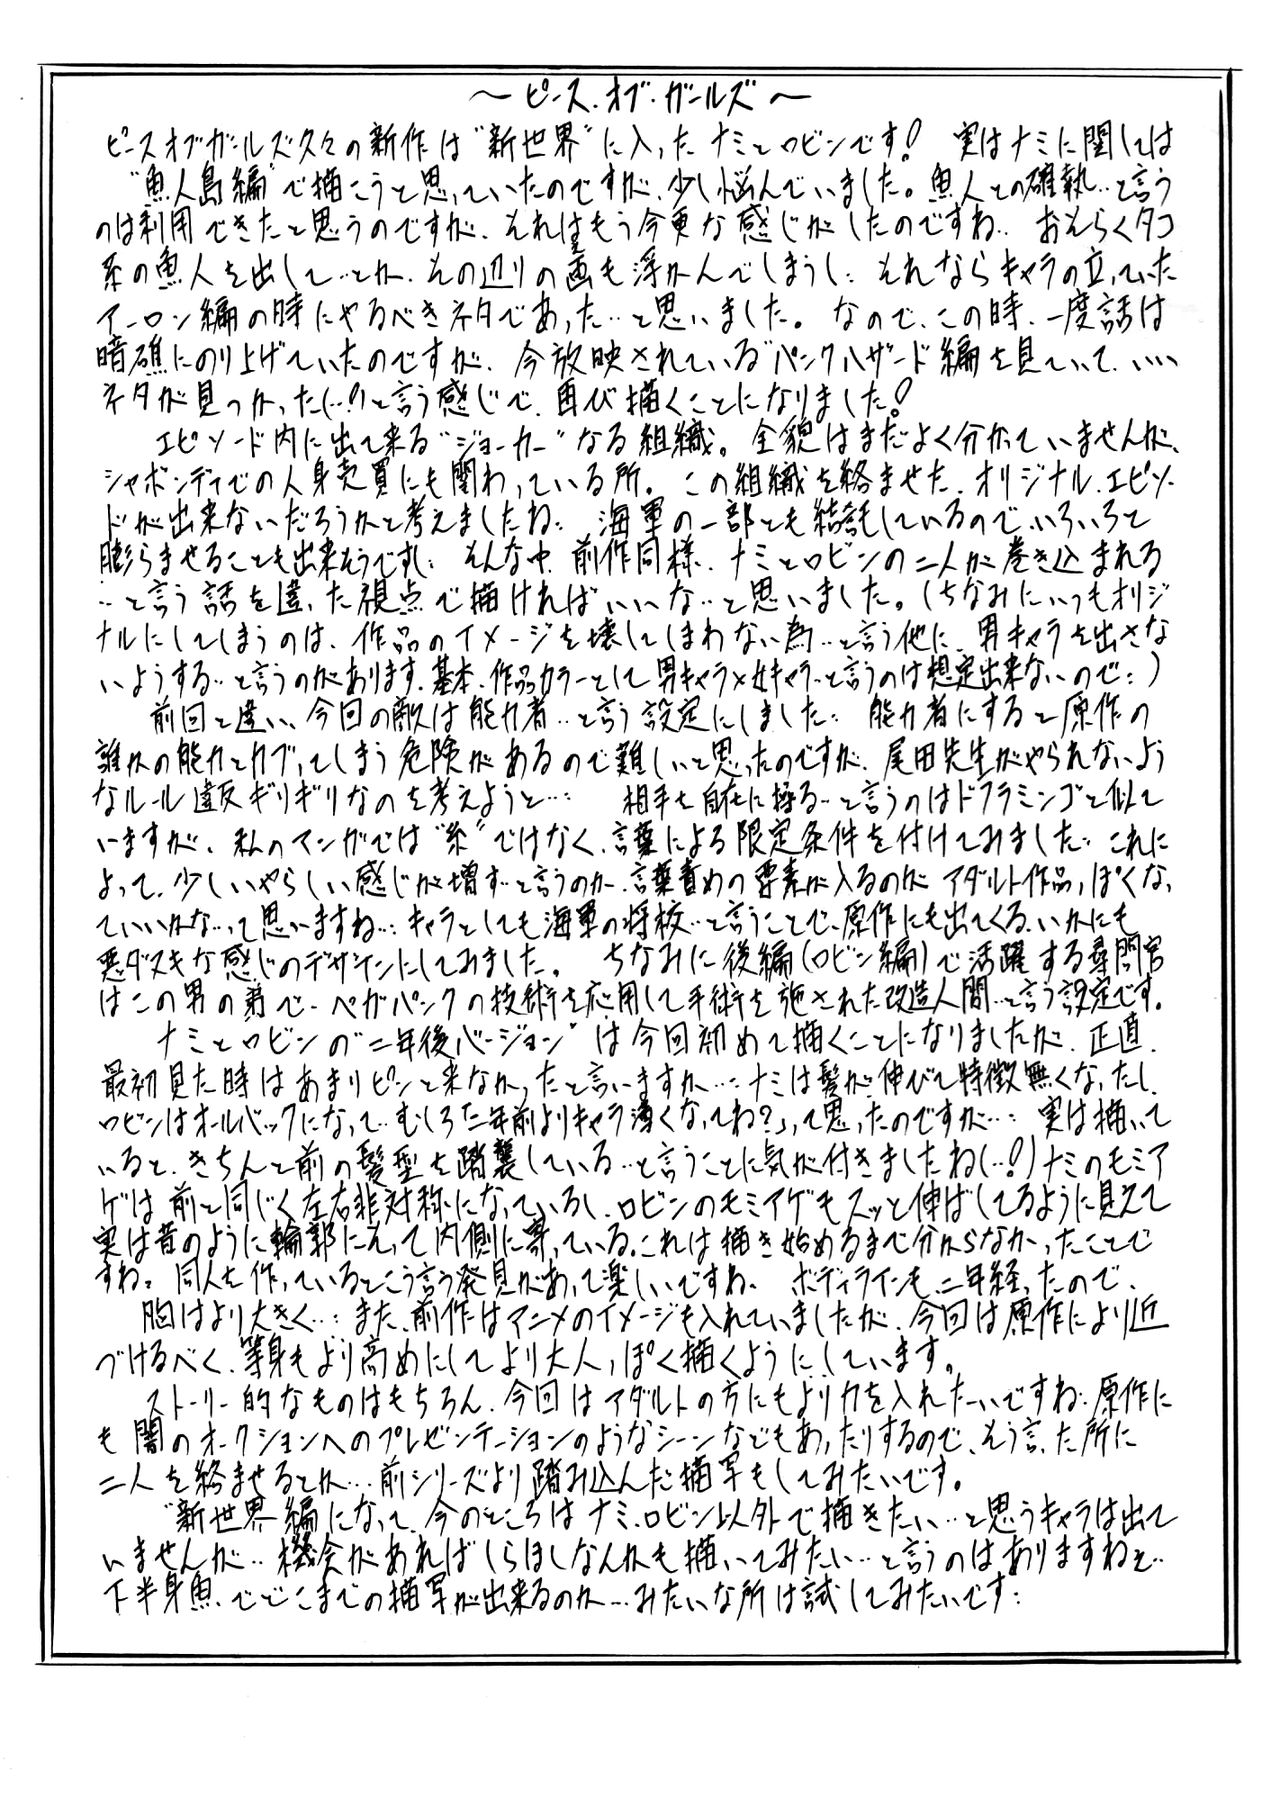 ～ピース・オブ・ガールズ～
ピースオブガールズ久々の新作は"新世界"に入ったナミとロビンです! 実はナミに関しては
"魚人島編"で描こうと思っていたのですが、少し悩んでいました。魚人との確執…と言う
のは利用できたと思うのですが、それはもう今更な感じがしたのですね… おそらくタコ
系の魚人を出して…とか、その辺りの画も浮かんでしまうし… それならキャラの立っていた
アーロン編の時にやるべきネタであった…と思いました。なので、この時、一度話は
暗礁にのり上げていたのですが、今放映されている"パンクハザード編を見ていて、…
ネタが見つかった(…!)と言う感じで、再び描くことになりました!
エピソード内に出て来る"ジョーカー"なる組織。全貌はまだよく分かっていませんが、
シャボンディでの人身売買にも関わっている所。この組織を絡ませた、オリジナル、エピソー
ドが出来ないだろうかと考えましたね… 海軍の一部とも結託しているので、いろいろと
膨らませることも出来そうですし… そんな中、前作同様、ナミとロビンの二人が巻き込まれる
…と言う話を違った視点で描ければいいな…と思いました。(ちなみにいつもオリジ
ナルにしてしまうのは、作品のイメージを壊してしまわない為…と言う他に、男キャラを出さな
いようする…と言うのがあります、基本、作品カラーとして男キャラ×女キャラ…と言うのは想定出来ないので…)
前回と違い、今回の敵は能力者…と言う設定にしました… 能力者にすると原作の
誰かの能力とカブってしまう危険があるので難しいと思ったのですが、尾田先生がやられないよう
なルール違反ギリギリなのを考えようと… 相手を自在に操る…と言うのはドフラミンゴと似て
いますが、私のマンガでは"糸"ではなく、言葉による限定条件を付けてみました… これに
よって、少しいやらしい感じが増す…と言うのか、言葉責めの要素が入るのがアダルト作品っぽくなっ
ていいかな…って思いますね… キャラとしても海軍の将校…と言うことで、原作にも出てくる、いかにも
悪ダヌキな感じのデザインにしてみました。 ちなみに後編(ロビン編)で活躍する尋問官
はこの男の弟で、ベガパンクの技術を応用して手術を施された改造人間…と言う設定です。
ナミとロビンの"二年後バージョン"は今回初めて描くことになりましたが、正直、
最初見た時はあまりピンと来なかったと言いますか… ナミは髪が伸びて特徴無くなったし、
ロビンはオールバックになって、むしろ「二年前よりキャラ薄くなってね?」って思ったのですが… 実は描いて
いると、きちんと前の髪型を踏襲している…と言うことに気が付きましたね(…!)ナミのモミア
ゲは前と同じく左右非対称になっているし、ロビンのモミアゲもスッと伸ばしてるように見えて
実は昔のように輪郭にそって内側に寄っている。これは描き始めるまで分からなかったことで
すね。同人を作っているとこう言う発見があって楽しいですね、 ボディラインも、二年経ったので、
胸はより大きく… また、前作はアニメのイメージも入れていましたが、今回は原作により近
づけるべく、等身もより高めにしてより大人っぽく描くようにしています。
ストーリー的なものはもちろん、今回はアダルトの方にもより力を入れたーいですね、原作に
も闇のオークションへのプレゼンテーションのようなシーンなどもあったりするので、そう言った所に
二人を絡ませるとか… 前シリーズより踏み込んだ描写もしてみたいです。
"新世界"編になって、今のところはナミ、ロビン以外で描きたい…と思うキャラは出て
いませんが… 機会があればしらほしなんかも描いてみたい…と言うのはありますねぇ…
下半身魚、でどこまでの描写が出来るのか…みたいな所は試してみたいです…